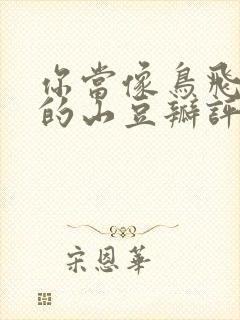 你當像鳥飛
的山豆瓣評
宋恩華